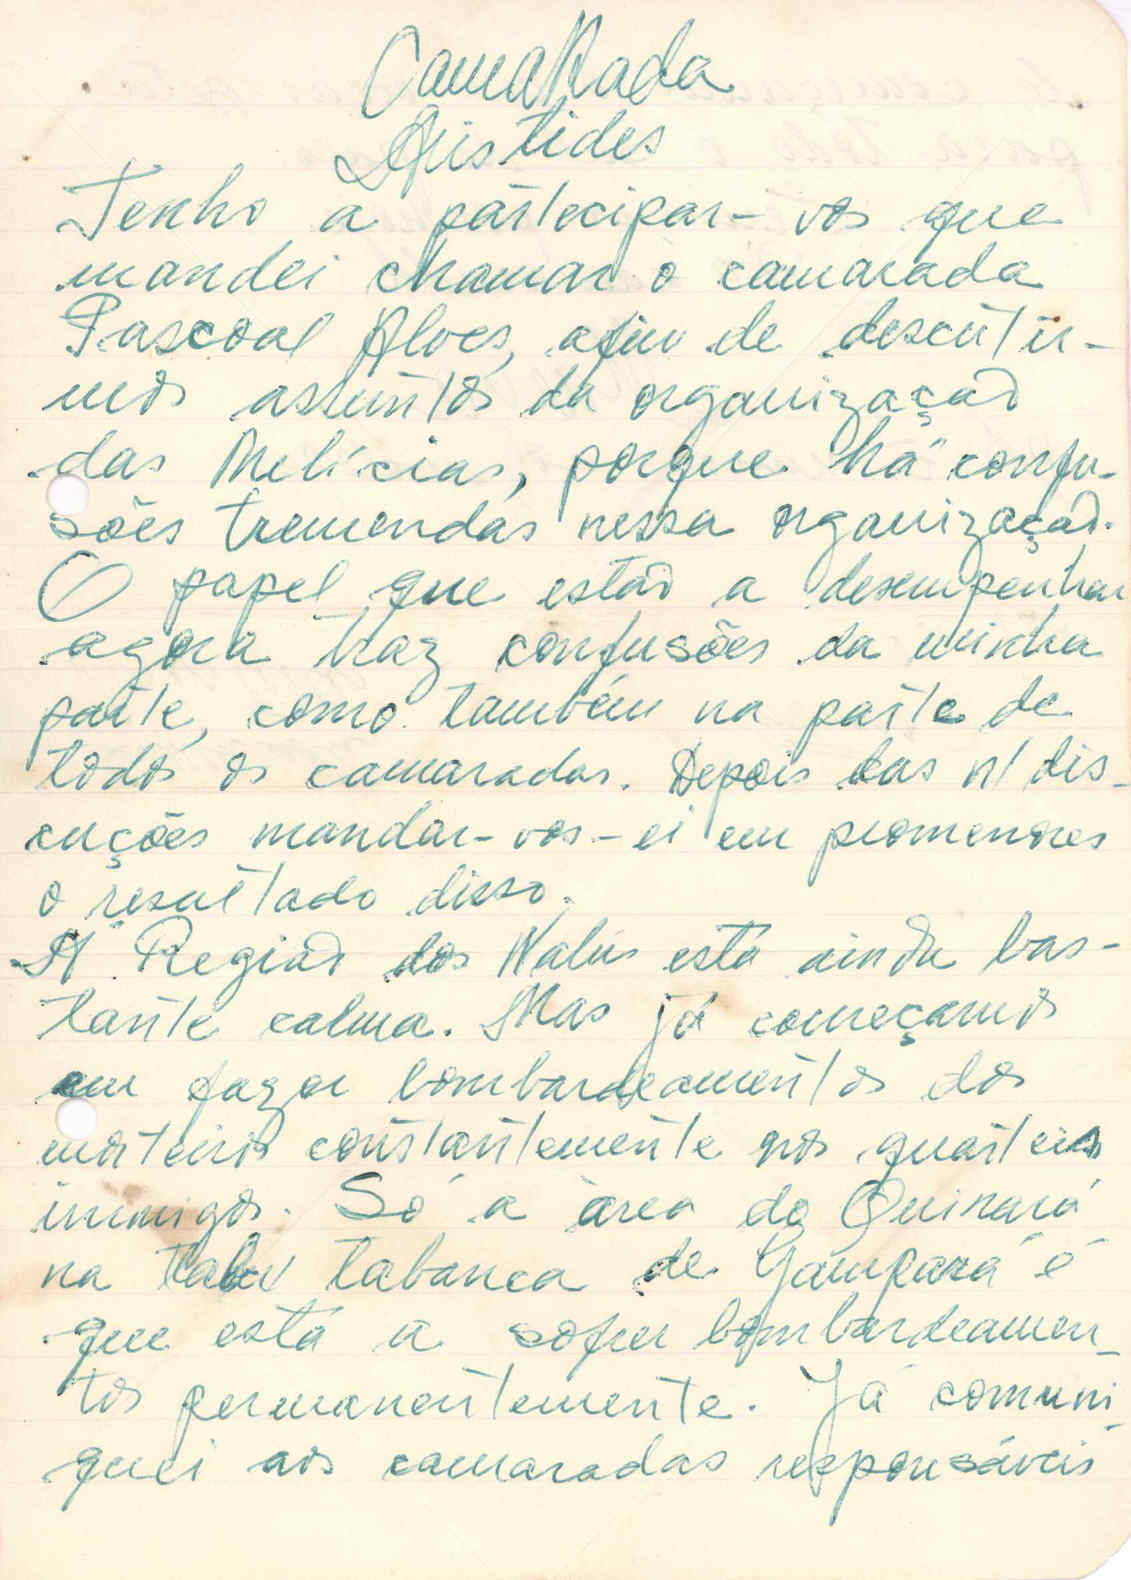 Camarada
Aristides
Tenho a partecipar-vos que
mandei chamar o camarada
Pascoal Alves, afim de descutir-
mos assuntos da organização
das Melícias, porque há confu-
sões tremendas nessa organização.
O papel que estão a desempenhar
agora traz confusões da minha
parte, como também na parte de
todos os camaradas. Depois das n/ dis-
cuções mandar-vos-ei em promenores
o resultado disso.
A Região dos Nalús está ainda bas-
tante calma. Mas já começamos
em fazer bombardeamentos dos
morteiros constantemente nos quarteis
inimigos. Só a área do Quinará
na tabanca de Gampará é
que está a sofrer bombardeamen-
tos permanentemente. Já comuni-
quei aos camaradas responsáveis